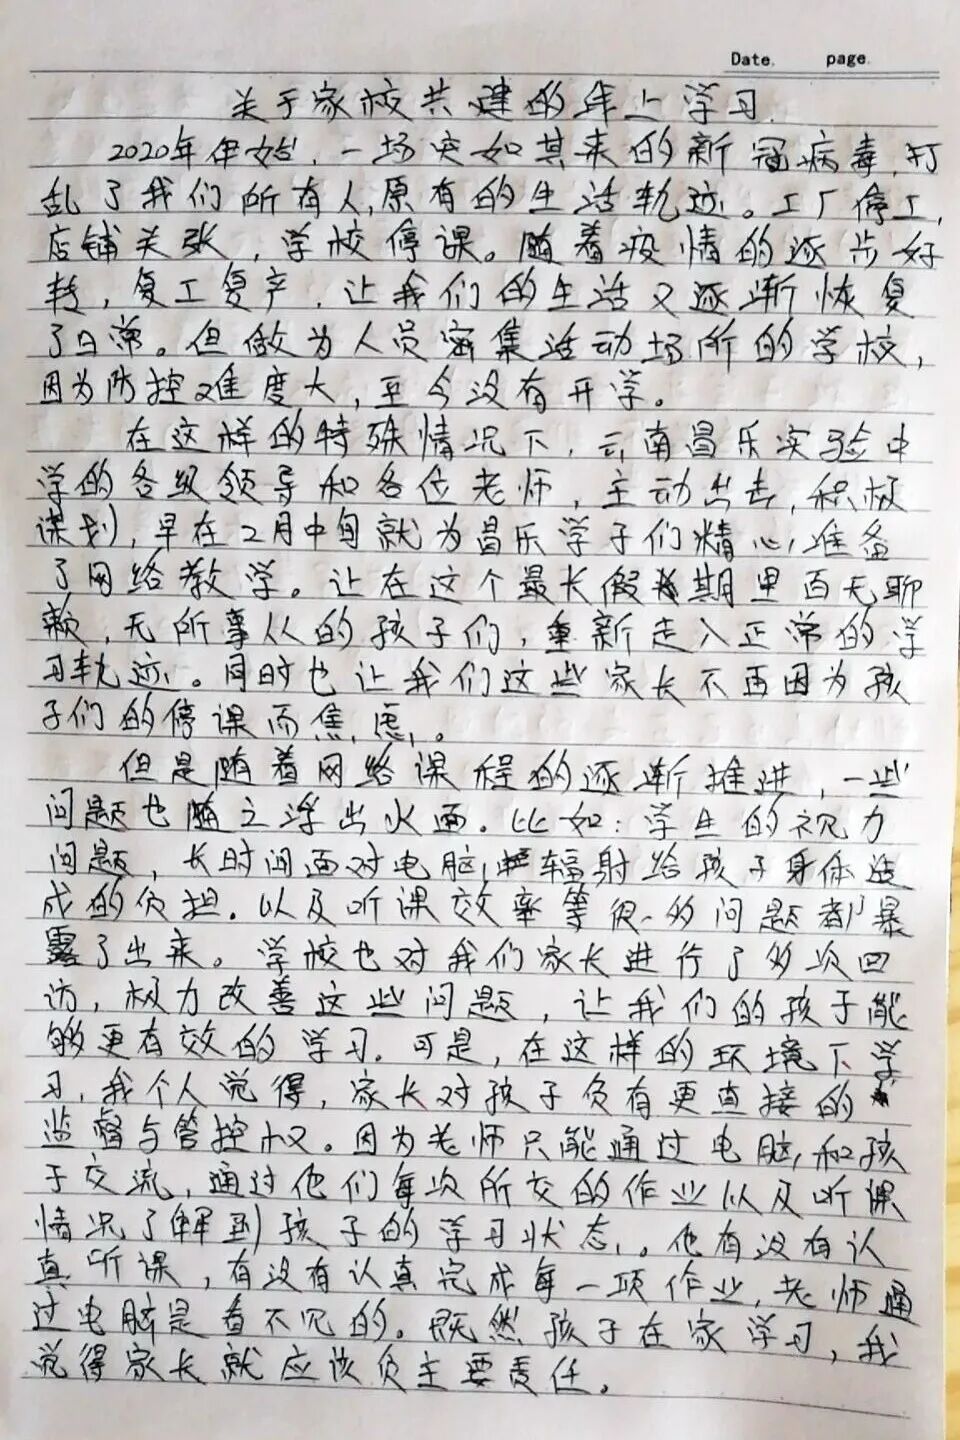 Date.      page.
关于家校共建的线上学习.
2020年伊始,一场突如其来的新冠病毒,打
乱了我们所有人,原有的生活轨迹。工厂停工,
店铺关张,学校停课。随着疫情的逐步好
转,复工复产,让我们的生活又逐渐恢复
了日常。但做为人员密集活动场所的学校,
因为防控难度大,至今没有开学。
在这样的特殊情况下,云南昌乐实验中
学的各级领导和各位老师,主动出击,积极
谋划,早在2月中旬就为昌乐学子们精心准备
了网络教学。让在这个最长假期里百无聊
赖,无所事从的孩子们,重新走入正常的学
习轨迹。同时也让我们这些家长不再因为孩
子们的停课而焦虑。
但是随着网络课程的逐渐推进,一些
问题也随之浮出水面。比如:学生的视力
问题,长时间面对电脑,辐射给孩子身体造
成的负担.以及听课效率等很多问题都暴
露了出来。学校也对我们家长进行了多次回
访,极力改善这些问题,让我们的孩子能
够更有效的学习.可是,在这样的环境下学
习,我个人觉得,家长对孩子负有更直接的
监督与管控权。因为老师只能通过电脑和孩
子交流,通过他们每次所交的作业以及听课
情况了解到孩子的学习状态。他有没有认
真听课,有没有认真完成每一项作业,老师通
过电脑是看不见的。既然孩子在家学习,我
觉得家长就应该负主要责任。